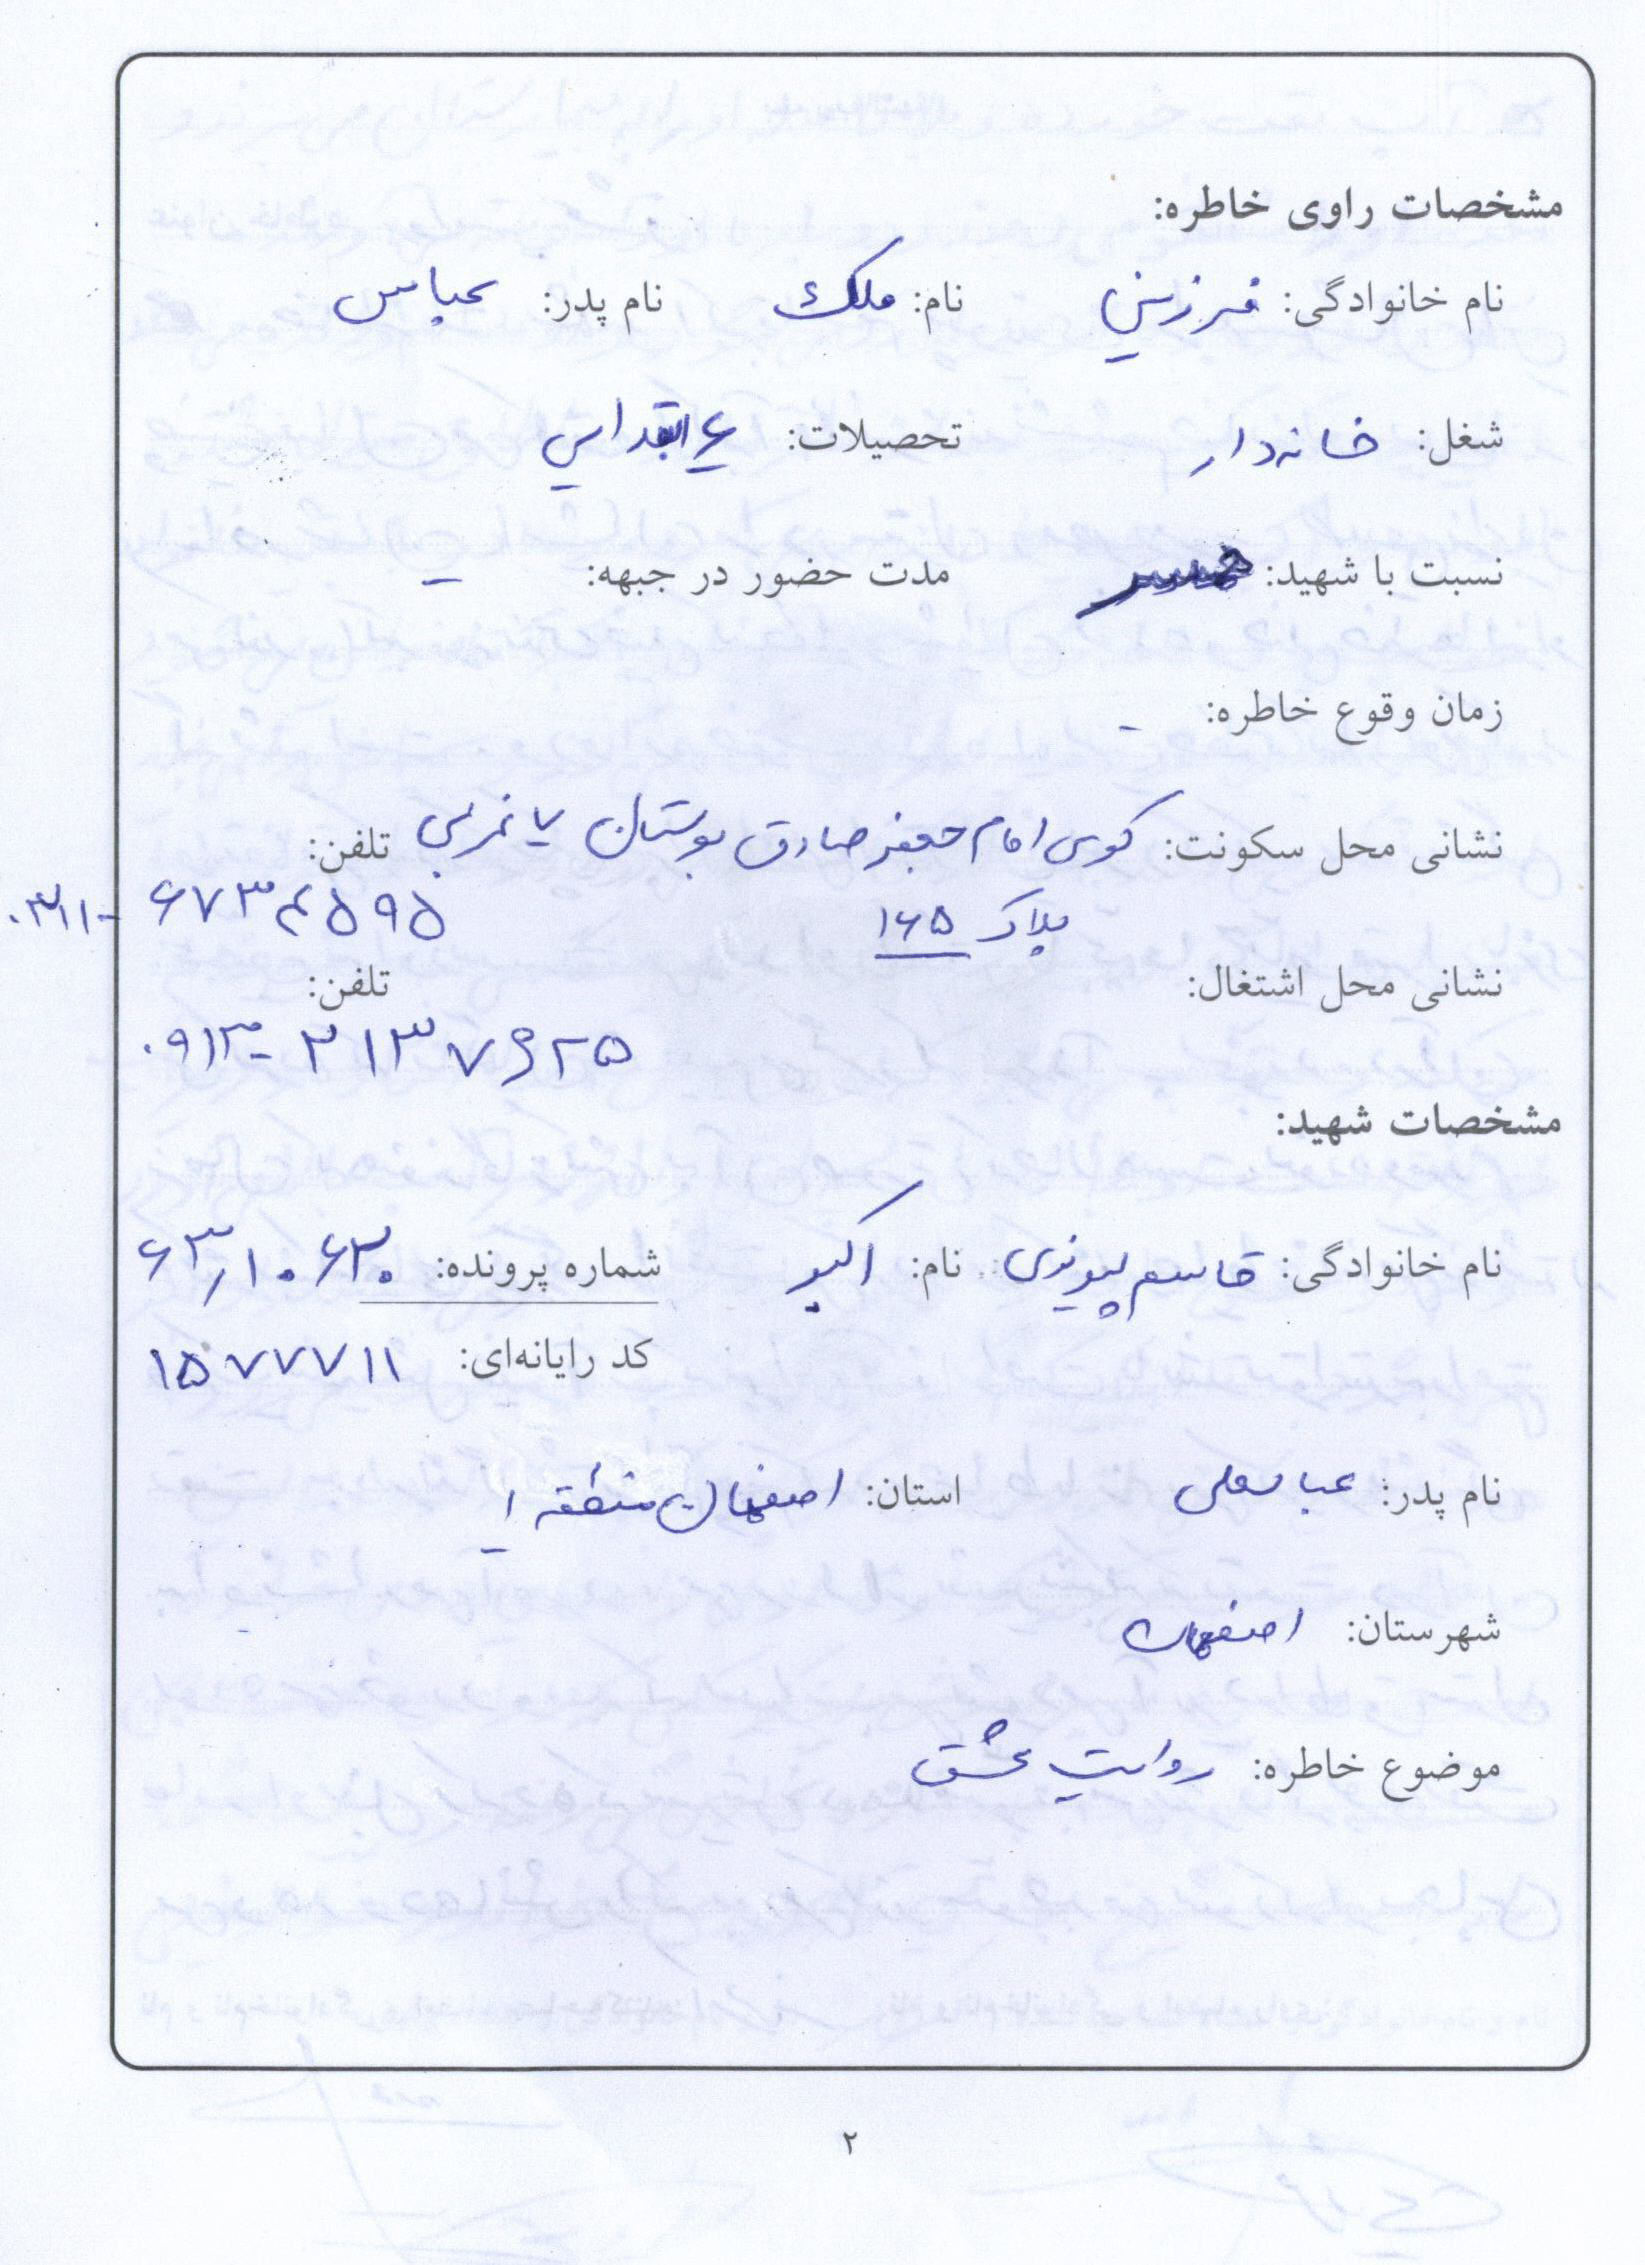 مشخصات راوی خاطره:
نام خانوادگی: فرزینی نام: ملک نام پدر: عباس
شغل: خانه‌دار تحصیلات: ۶ ابتدایی
نسبت با شهید: همسر مدت حضور در جبهه: –
زمان وقوع خاطره: -
نشانی محل سکونت: کوی امام جعفر صادق بوستان ۷ غربی تلفن:
پلاک ۱۶۵ ۰۳۱۱- ۶۷۳۴۵۹۵
نشانی محل اشتغال: تلفن:
۰۹۱۳- ۲۱۳۷۶۲۵
مشخصات شهید:
نام خانوادگی: قاسم پیوندی نام: اکبر شماره پرونده: ۶۳/۱۰۶۳۰
کد رایانه‌ای: ۱۵۷۷۷۱۱
نام پدر: عباسعلی استان: اصفهان منطقه ۱
شهرستان: اصفهان
موضوع خاطره: روایت عشق
۲